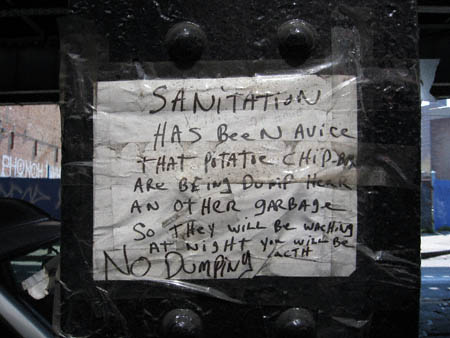 SANITATION
HAS BEEN AVICE
THAT POTATIE CHIP-BA
ARE BEING DUMP HEAR
AN OTHER GARBAGE
SO THEY WILL BE WACHING
AT NIGHT YOU WILL BE
NO DUMPING
PHONOH